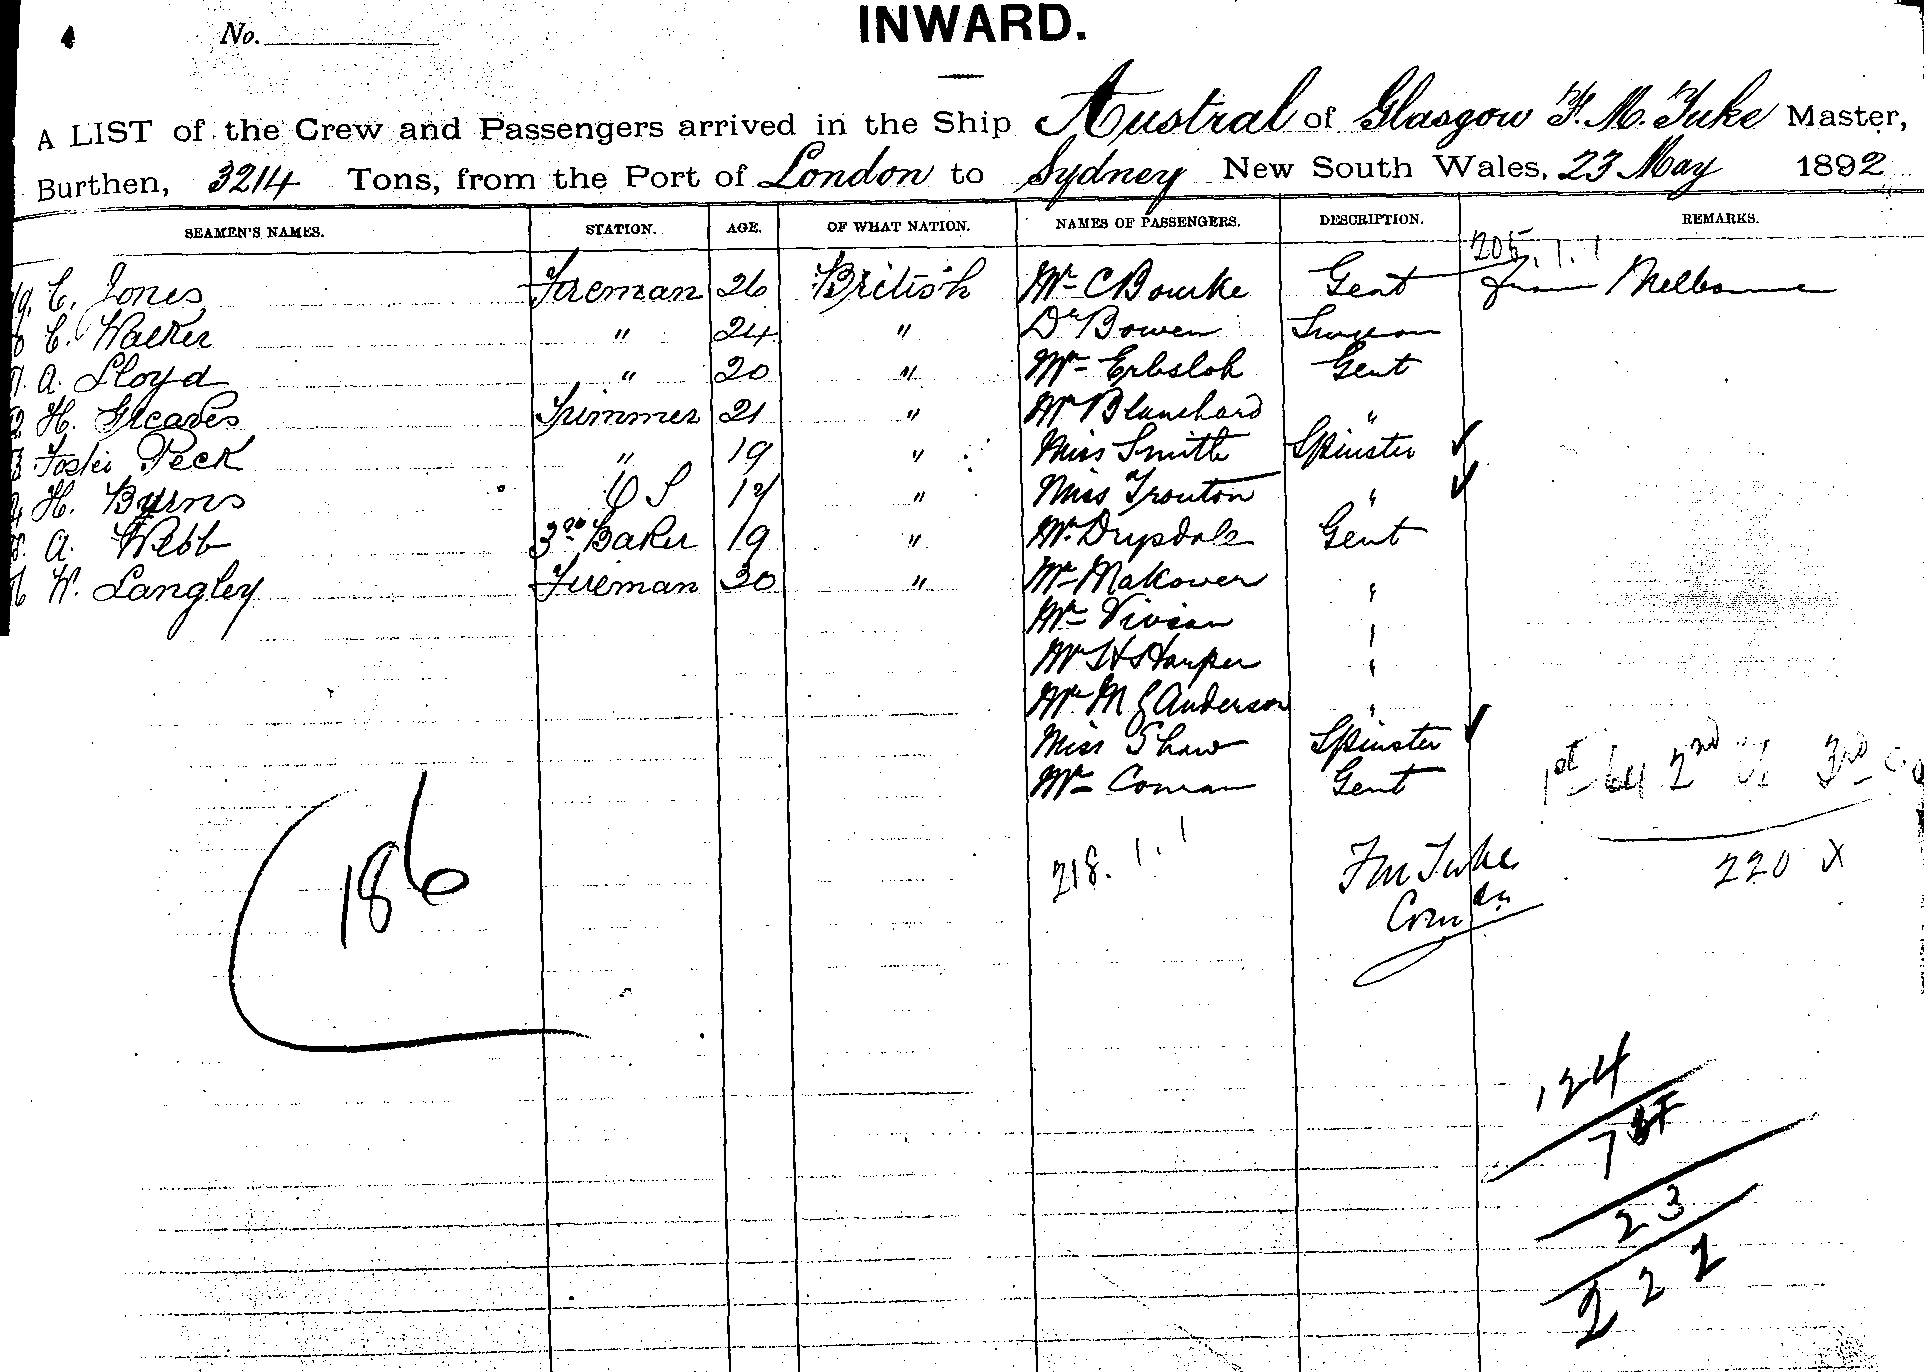 No.
INWARD.
A LIST of the Crew and Passengers arrived in the Ship Austral of Glasgow F. M. Tuke Master,
Burthen, 3214 Tons, from the Port of London to Sydney New South Wales, 23 May 1892
SEAMEN'S NAMES. STATION. AGE. OF WHAT NATION. NAMES OF PASSENGERS. DESCRIPTION. REMARKS.
205. 1. 1
C. Jones Fireman 26 British Mr C Bourke Gent from Melbourne
C. Walker " 24 " Dr Bowen Surgeon
A. Lloyd " 20 " Mr Erbsloh Gent
H. Greaves Trimmer 21 " Mr Blanchard "
Foster Peck " 19 " Miss Smith Spinster ✓
H. Byrns O S 17 " Miss Trouton " ✓
A. Webb 3rd Baker 19 " Mr Drysdale Gent
W. Langley Fireman 30 " Mr Makower "
Mr Vivian "
Mr H Harper "
Mr M G Anderson "
Miss Shaw Spinster ✓
Mr Conran Gent
1st 64 2nd 3rd
186
218. 1. 1
F M Tuke
220 X
124
75
23
222